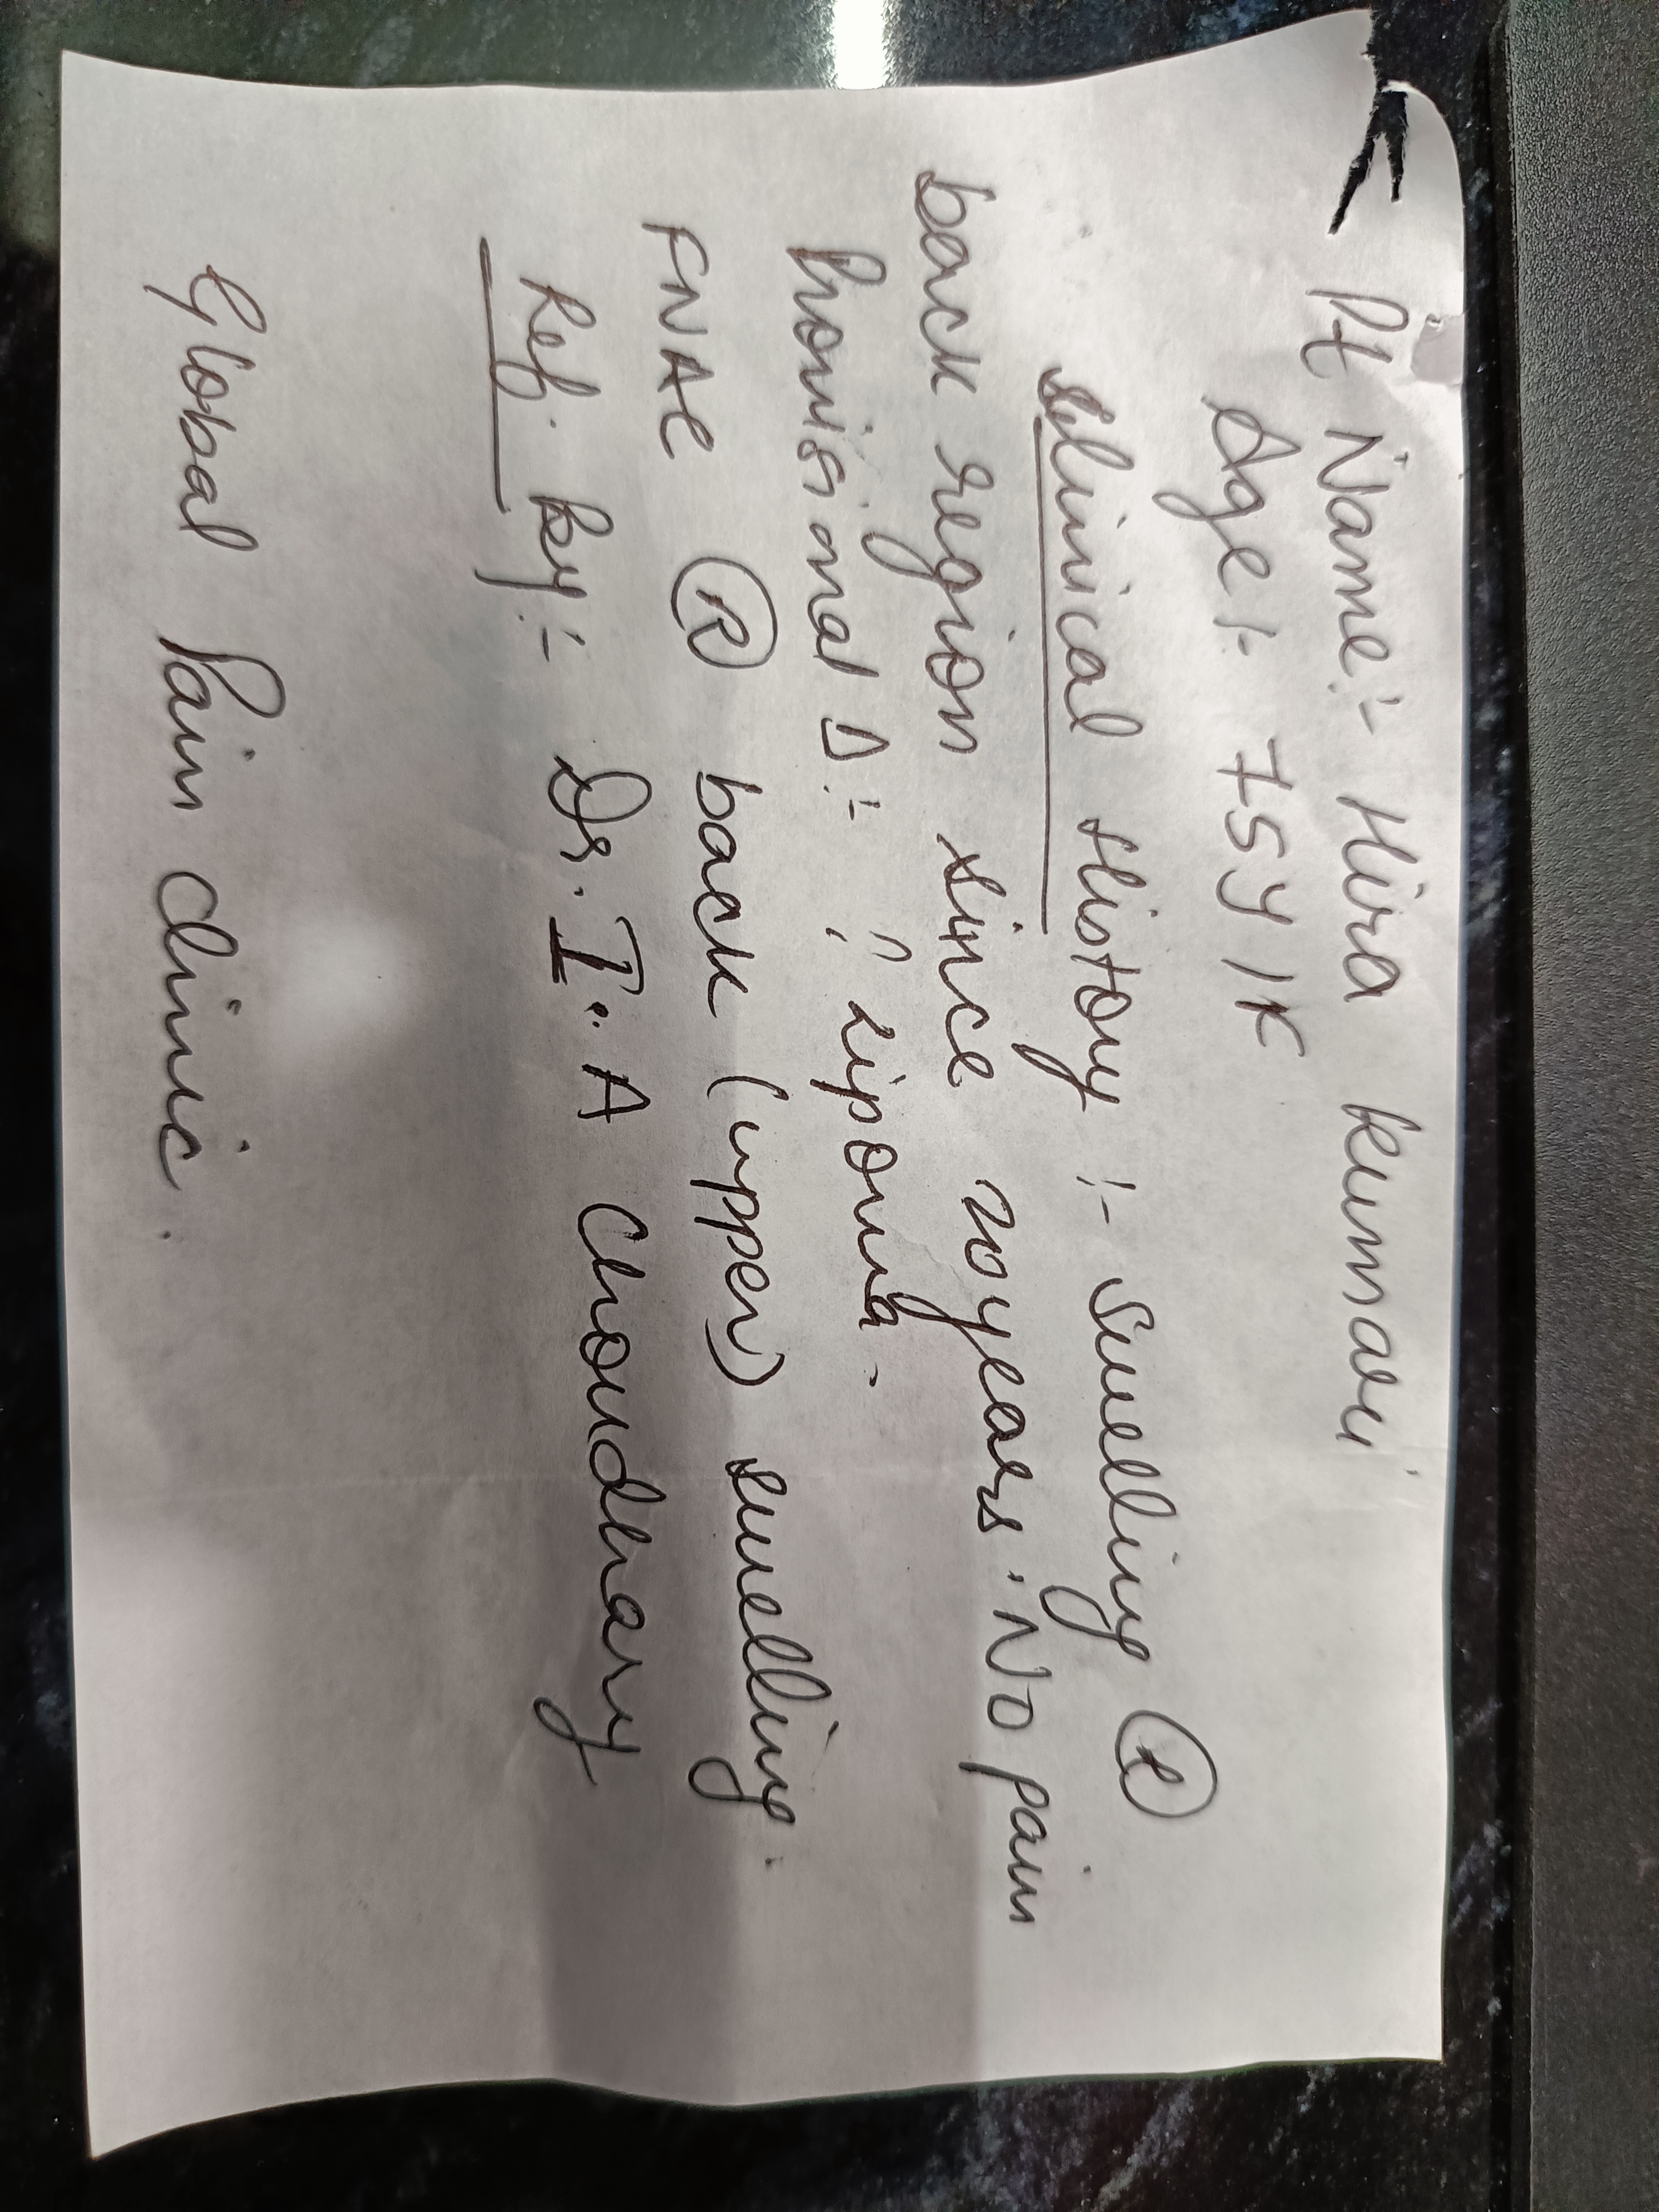 Pt Name:- Hira kumari
Age:- 75Y/F
Clinical History:- Swelling
back region since 20years. No pain
Provisional D:- ? Lipoma.
FNAC Ⓡ back (upper) swelling.
Ref. by:- Dr. I. A Choudhary
Global Pain clinic.